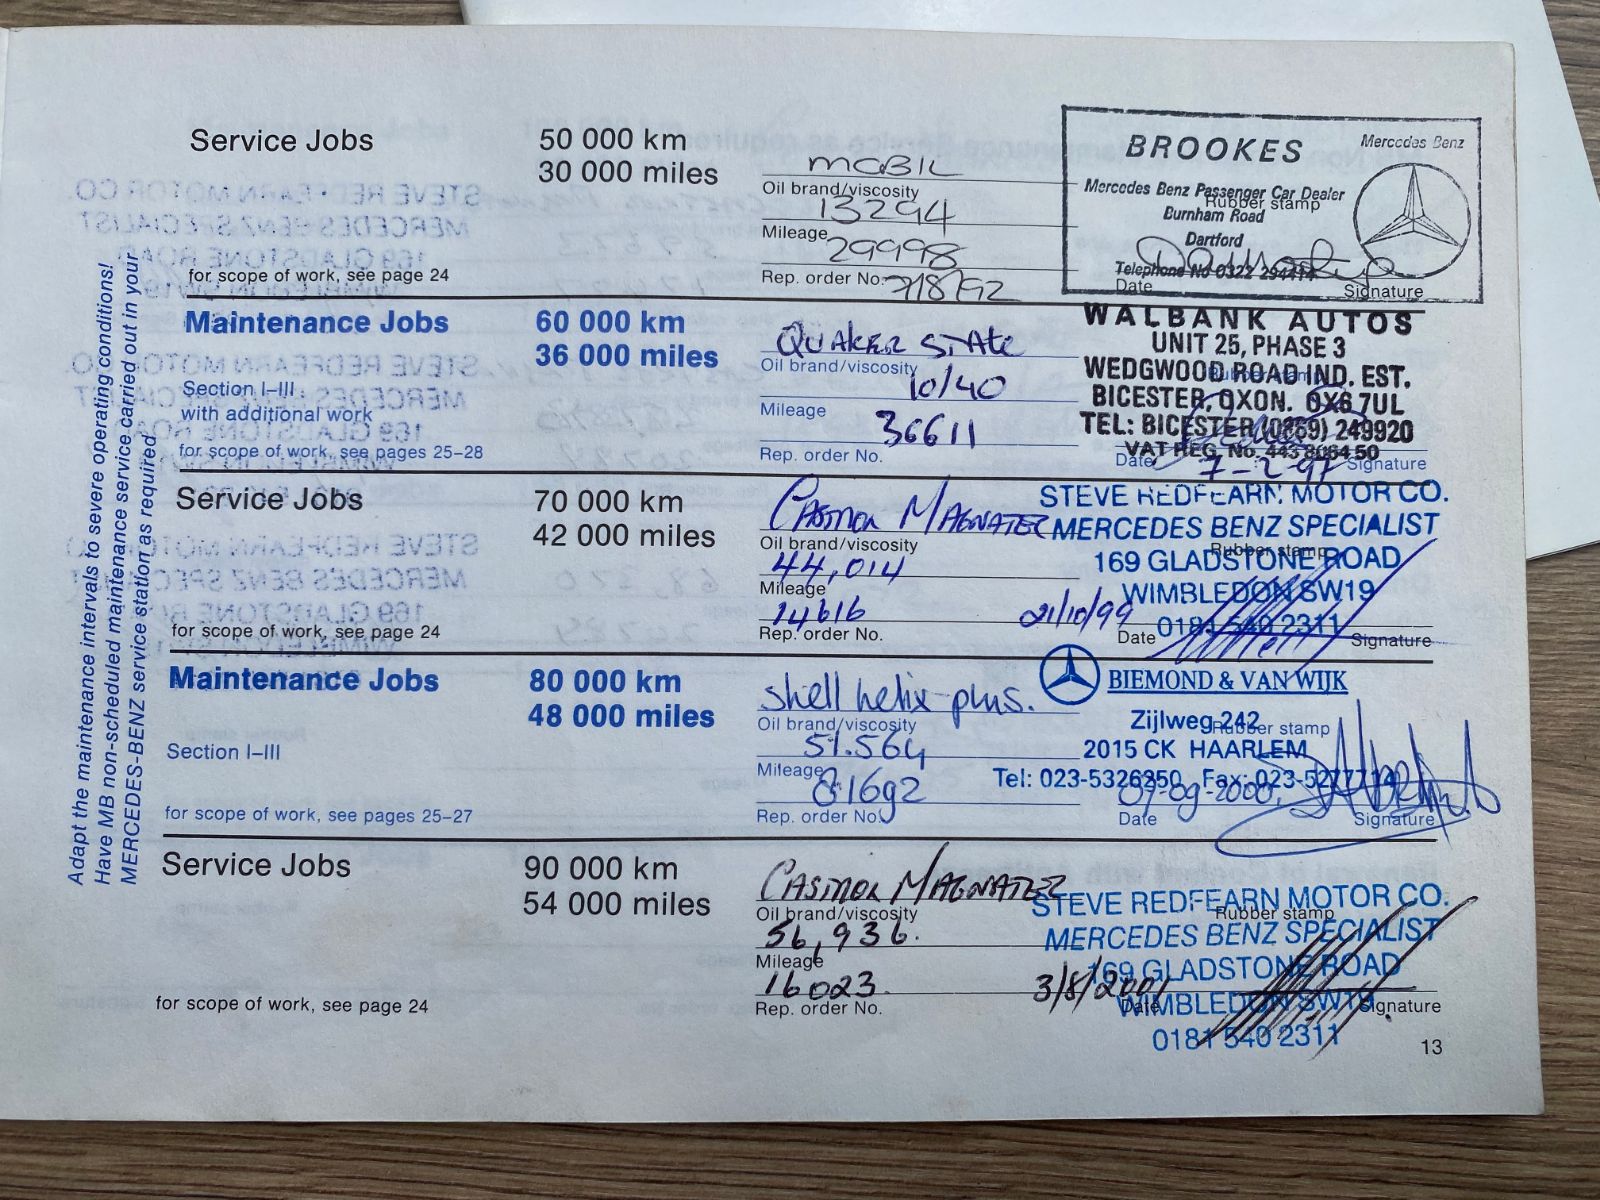 Adapt the maintenance intervals to severe operating conditions!
Have MB non-scheduled maintenance service carried out in your
MERCEDES-BENZ service station as required.
Service Jobs
50 000 km
30 000 miles
for scope of work, see page 24
MOBIL
Oil brand/viscosity
13294
Mileage
29998
Rep. order No.
7/8/92
BROOKES
Mercedes Benz
Mercedes Benz Passenger Car Dealer
Rubber stamp
Burnham Road
Dartford
Telephone No 0322 294414
Date
Signature
Maintenance Jobs
60 000 km
36 000 miles
Section I–III
with additional work
for scope of work, see pages 25–28
QUAKER STATE
Oil brand/viscosity
10/40
Mileage
36611
Rep. order No.
WALBANK AUTOS
UNIT 25, PHASE 3
WEDGWOOD ROAD IND. EST.
Rubber stamp
BICESTER, OXON. OX6 7UL
TEL: BICESTER (0869) 249920
VAT REG. No. 443 8064 50
Date
7-2-97
Signature
Service Jobs
70 000 km
42 000 miles
for scope of work, see page 24
CASTROL MAGNATEC
Oil brand/viscosity
44,014
Mileage
14616
Rep. order No.
21/10/99
STEVE REDFEARN MOTOR CO.
MERCEDES BENZ SPECIALIST
Rubber stamp
169 GLADSTONE ROAD
WIMBLEDON SW19
0181 540 2311
Date
Signature
Maintenance Jobs
80 000 km
48 000 miles
Section I–III
for scope of work, see pages 25–27
shell helix plus.
Oil brand/viscosity
51.564
Mileage
81692
Rep. order No.
BIEMOND & VAN WIJK
Zijlweg 242
Rubber stamp
2015 CK HAARLEM
Tel: 023-5326250 Fax: 023-5277714
07-09-2000
Date
Signature
Service Jobs
90 000 km
54 000 miles
for scope of work, see page 24
CASTROL MAGNATEC
Oil brand/viscosity
56,936.
Mileage
16023.
Rep. order No.
3/8/2001
STEVE REDFEARN MOTOR CO.
Rubber stamp
MERCEDES BENZ SPECIALIST
169 GLADSTONE ROAD
WIMBLEDON SW19
0181 540 2311
Date
Signature
13